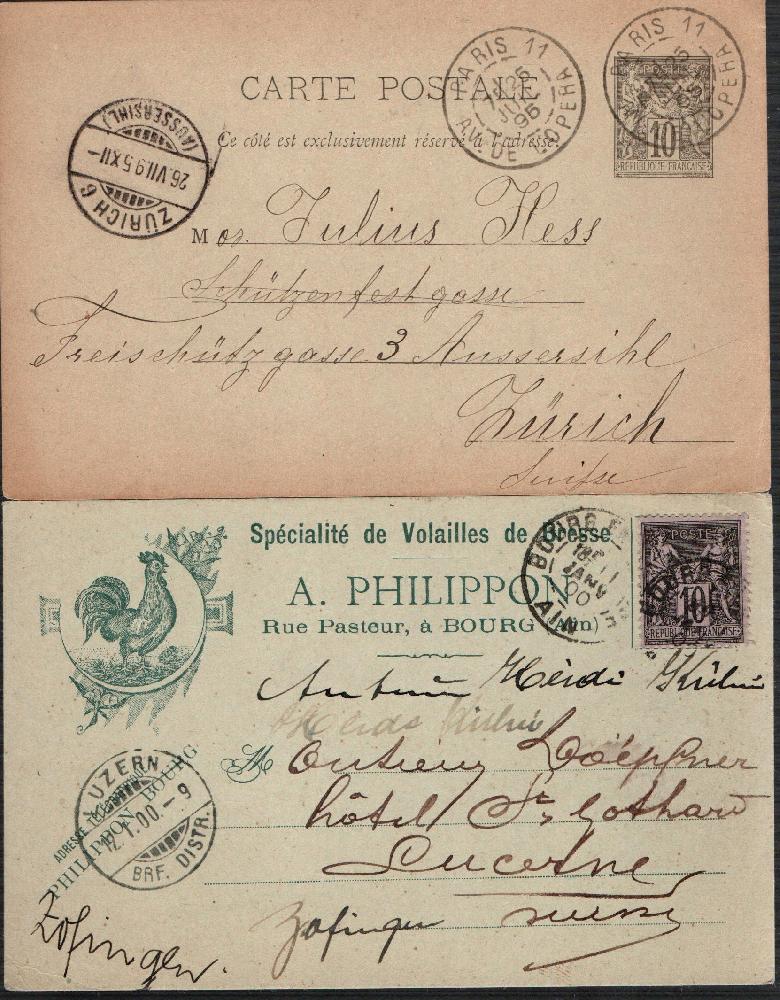 CARTE POSTALE
Ce côté est exclusivement réservé à l'adresse.
PARIS 11
25
JUIL
95
AV. DE L'OPERA
PARIS 11
25
AV. DE L'OPERA
POSTES
10
REPUBLIQUE FRANÇAISE
ZÜRICH 6
26.VII.95.XII-
(AUSSERSIHL)
Mor. Julius Hess
Schützenfestgasse
Freischützgasse 3 Aussersihl
Zürich
Suisse
Spécialité de Volailles de Bresse
A. PHILIPPON
Rue Pasteur, à BOURG (Ain)
BOURG
11
JANV
AIN
POSTES
10
REPUBLIQUE FRANÇAISE
BOURG
Heidi
M
hôtel St Gothard
Lucerne
Suisse
LUZERN
12.I.00.-9
BRF. DISTR.
ADRESSE TÉLÉGRAPHIQUE
PHILIPPON BOURG
Zofingen.
Zofingen